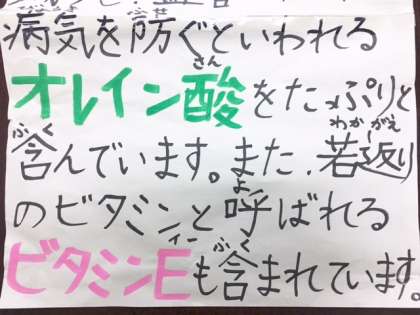 病気を防ぐといわれる
オレイン酸をたっぷりと
含んでいます。また、若返り
のビタミンと呼ばれる
ビタミンEも含まれています。